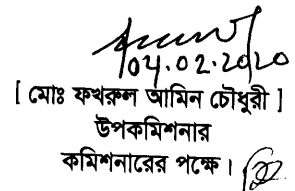 04.02.2020
[ মোঃ ফখরুল আমিন চৌধুরী ]
উপকমিশনার
কমিশনারের পক্ষে।